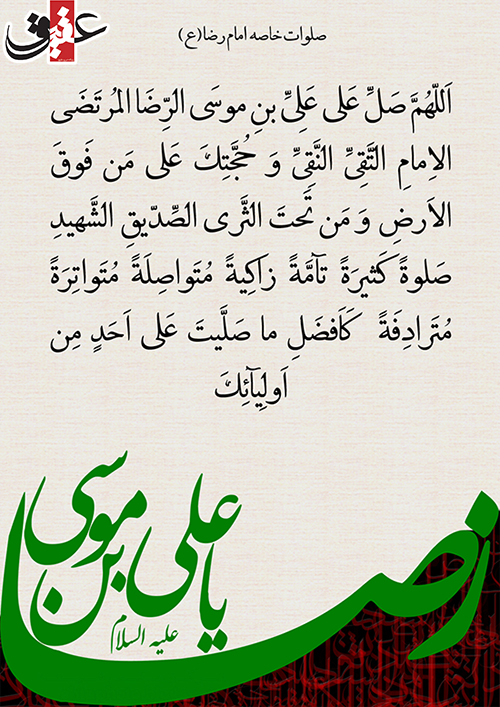 عقیق
صلوات خاصه امام رضا(ع)
اَللّهُمَّ صَلِّ عَلی عَلِیِّ بنِ موسَی الرِّضَا المُرتَضَی
الاِمامِ التَّقِیِّ النَّقِیِّ وَ حُجَّتِكَ عَلی مَن فَوقَ
الاَرضِ وَ مَن تَحتَ الثَّری الصِّدّیقِ الشَّهیدِ
صَلوةً کَثیرَةً تآمَّةً زاکِیةً مُتَواصِلَةً مُتَواتِرَةً
مُتَرادِفَةً کَاَفضَلِ ما صَلَّیتَ عَلی اَحَدٍ مِن
اَولِیآئِكَ
یا علی بن موسی
رضا
علیه السلام